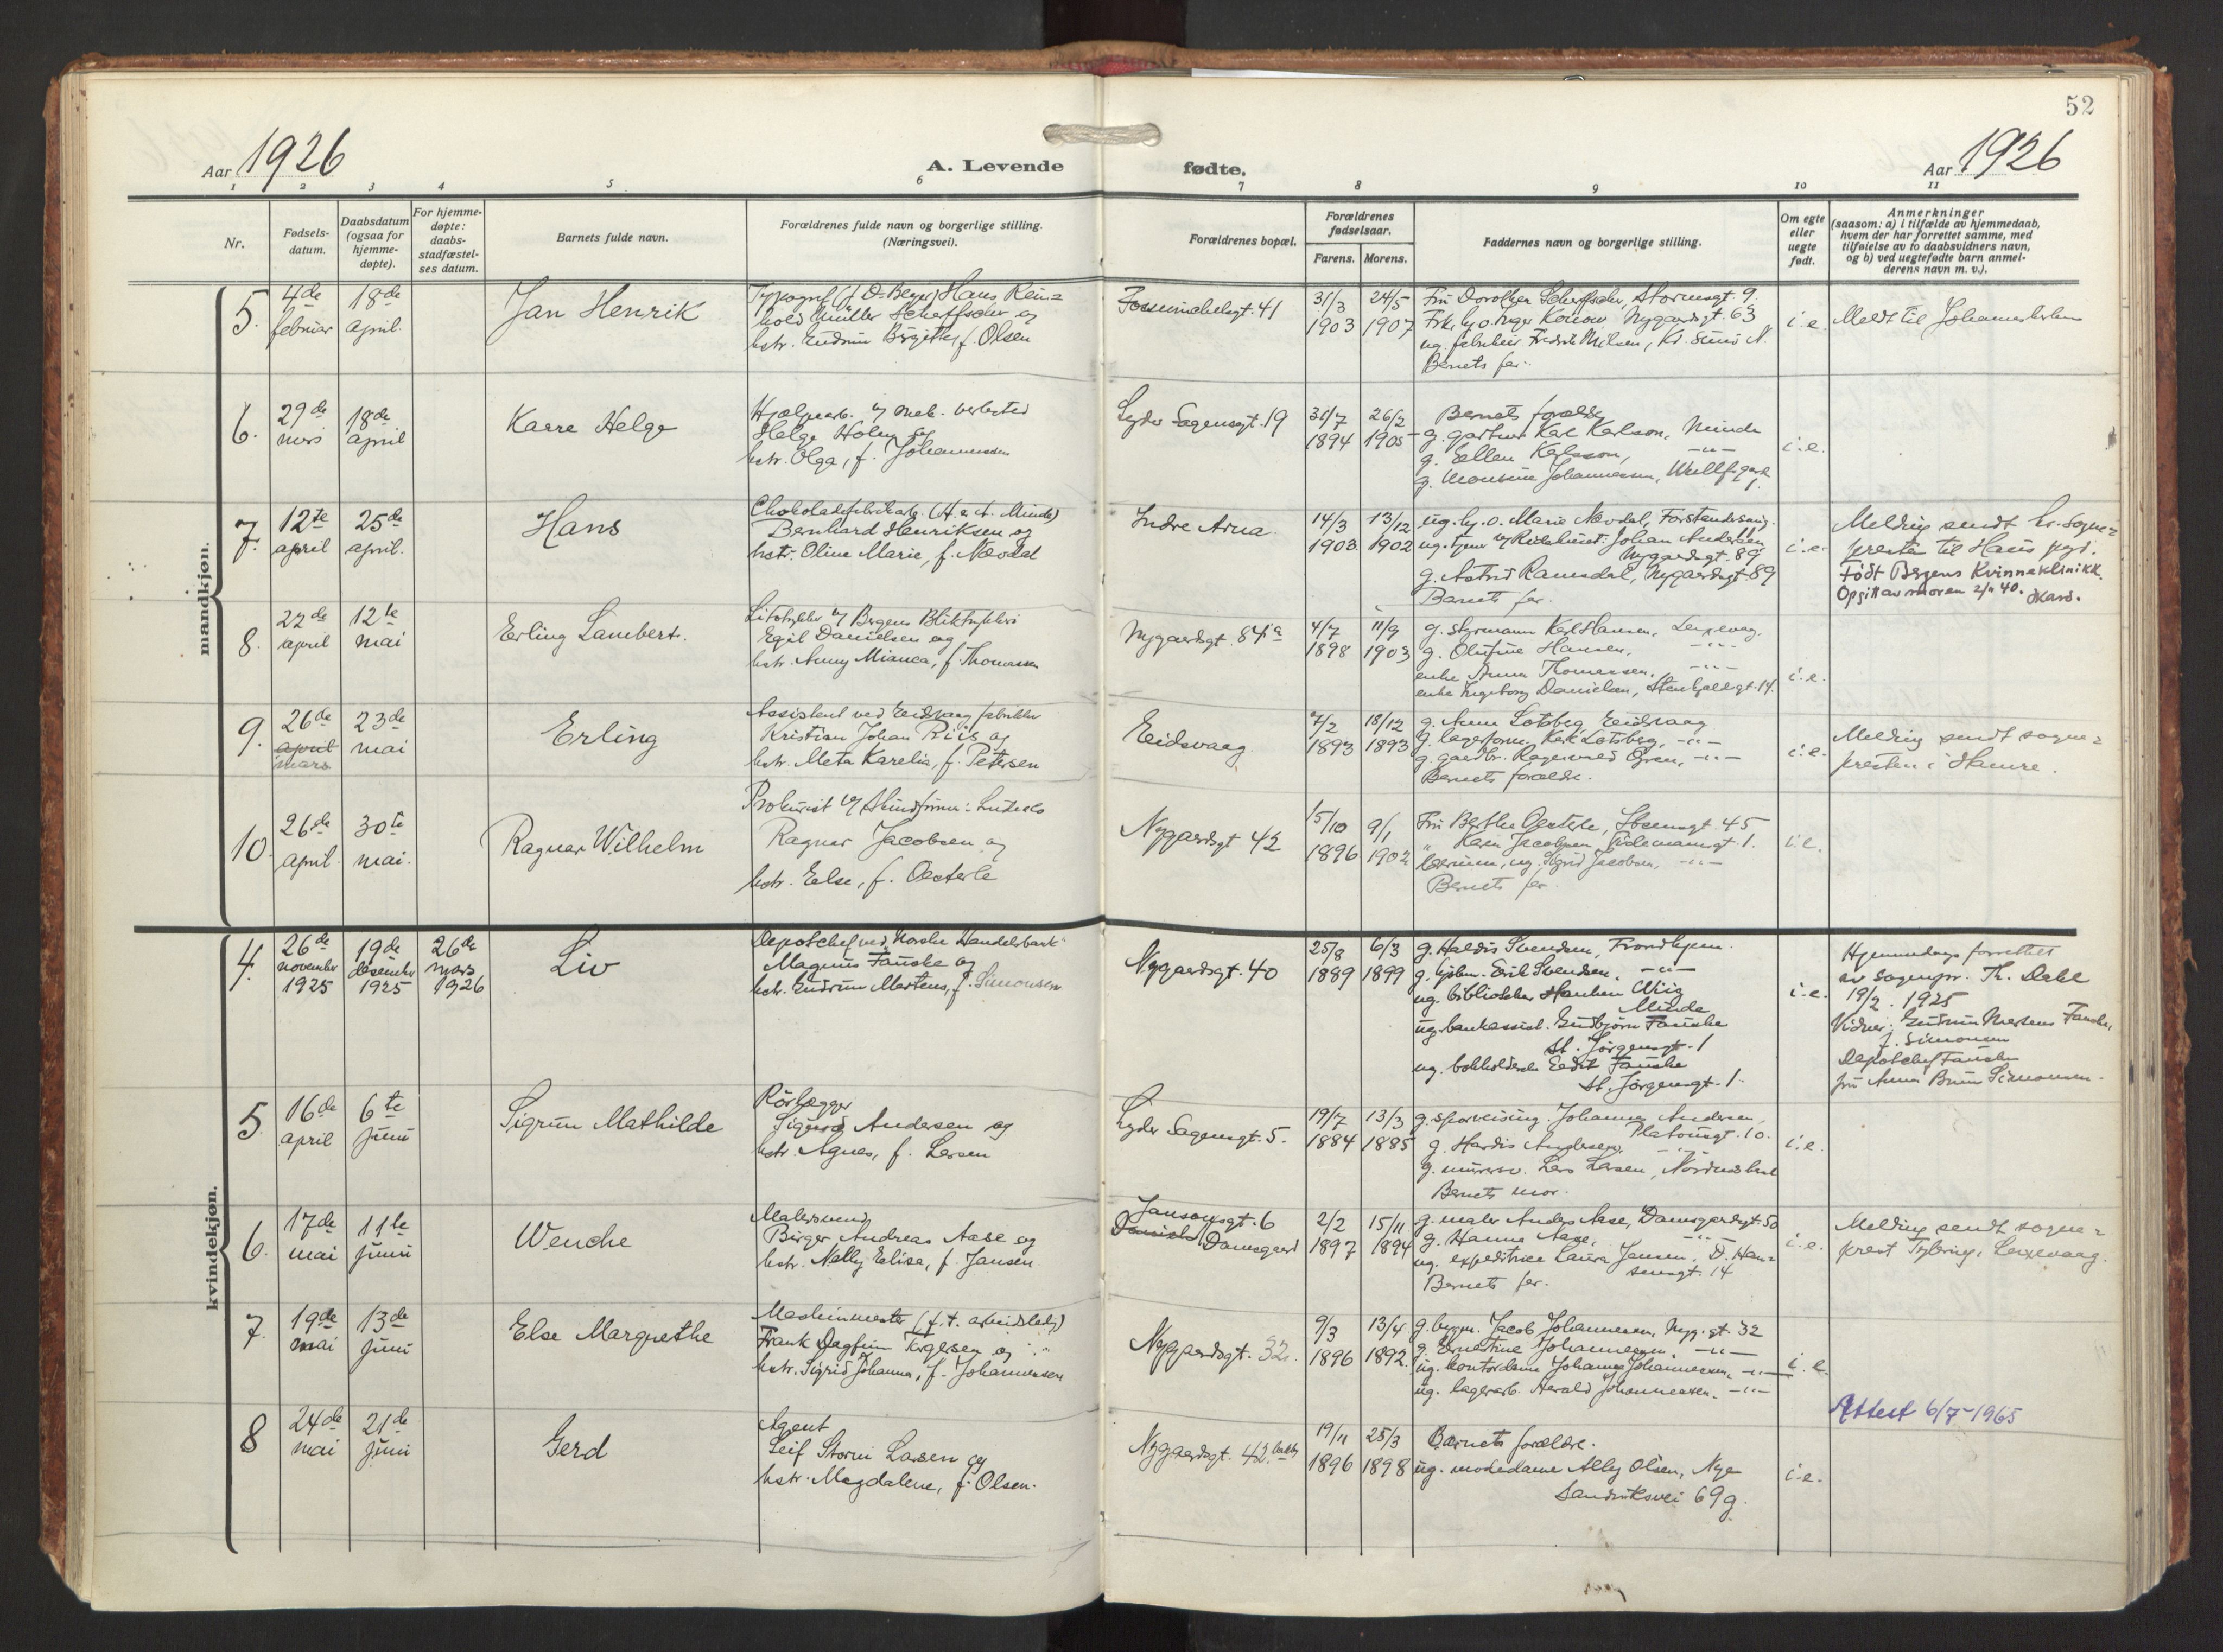 52
Aar 1926
A. Levende fødte.
Aar 1926
1 2 3 4 5 6 7 8 9 10 11
Nr.
Fødsels-
datum.
Daabsdatum
(ogsaa for
hjemme-
døpte).
For hjemme-
døpte:
daabs-
stadfæstel-
ses datum.
Barnets fulde navn.
Forældrenes fulde navn og borgerlige stilling.
(Næringsvei).
Forældrenes bopæl.
Forældrenes
fødselsaar.
Farens. Morens.
Faddernes navn og borgerlige stilling.
Om egte
eller
uegte
født.
Anmerkninger
(saasom: a) i tilfælde av hjemmedaab,
hvem der har forrettet samme, med
tilføielse av to daabsvidners navn,
og b) ved uegtefødte barn anmel-
derens navn m. v.).
mandkjøn.
5.
4de
februar
18de
april.
Jan Henrik
Hans Rein=
hold Müller
hstr. Birgitte, f. Olsen
41
31/3
1903
24/5
1907
Fru Dorothea Stormsgt. 9.
Nygaardsgt. 63
Barnets far.
i.e.
Meldt til Johanneskirken
6.
29de
mars
18de
april
Kaare Helge
Hjælpearb. v/ mek. verksted
Helge Holm og
hstr. Olga, f. Johannessen
Lyder Sagensgt. 19
31/7
1894
26/2
1905
Barnets forældre
g. gartner Karl Karlsson, Minde
g. Ellen Karlsson, -"-
g. Johannessen,
i.e.
7.
12te
april
25de
april.
Hans
Chokoladefabrikarb. (Minde)
Bernhard Henriksen og
hstr. Oline Marie, f. Nævdal
Indre Arna
14/3
1903
13/12
1902
ug. hj. o. Marie Nævdal,
Johan Andersen
Nygaardsgt. 89
g. Astrid Ramsdal, Nygaardsgt. 89
Barnets far.
i.e.
Melding sendt hr. sogne=
presten til Haus pgd.
Født Bergens Kvinneklinikk.
Opgitt av moren 2/11 40.
8.
22de
april
12te
mai
Erling Lambert.
v/ Bergens Bliktrykkeri
Egil Danielsen og
hstr. Anny Mianca, f. Thomassen
Nygaardsgt. 84a
4/7
1898
11/9
1903
g. styrmann Karl Hansen, Laxevaag.
g. Olufine Hansen, -"-
enke Anna Thomassen, -"-
enke Ingeborg Danielsen, 14.
i.e.
9.
26de
april
mars
23de
mai
Erling
Assistent ved Eidsvaag fabrikker
Kristian Johan Riis og
hstr. Meta Karelia, f. Petersen
Eidsvaag
7/2
1893
18/12
1893
g. Anna Lotsberg Eidsvaag
g. lagerform. Karl Lotsberg, -"-
g. gaardbr. -"-
Barnets forældre.
i.e.
Melding sendt sogne=
presten i Hamre.
10.
26de
april.
30te
mai.
Ragnar Wilhelm
Prokurist v/
Ragnar Jacobsen og
hstr. Else, f. Oesterle
Nygaardsgt 42
15/10
1896
9/1
1902
Fru Berthe Oesterle, Ibsensgt. 45
" Karen Jacobsen, Tidemansgt. 1.
lærerinne, ug. Sigrid Jacobsen, -"-
Barnets far.
i.e.
kvindekjøn.
4.
26de
november
1925
19de
desember
1925
26de
mars
1926
Liv
Depotchef ved Norske Handelsbank
Magnus Fauske og
hstr. Gudrun Mertens, f. Simonsen
Nygaardsgt. 40
25/8
1889
6/3
1899
g. Haldis Svendsen, Trondhjem.
g. kjøbm. Erik Svendsen, -"-
ug. bibliotekar Wiig
Minde
ug. bankassist. Gudbjørn Fauske
St. Jørgensgt. 1
ug. bokholderske Edit Fauske
St. Jørgensgt. 1.
i.e.
Hjemmedaab forrettet
av sognepr. Th. Dahl
19/2. 1925
Vidner: Gudrun Mertens Fauske,
f. Simonsen
Depotchef Fauske
fru Anna Bruun Simonsen.
5.
16de
april
6te
juni
Sigrun Mathilde
Rørlægger
Sigurd Andersen og
hstr. Agnes, f. Larsen
Lyder Sagensgt. 5.
19/7
1884
13/3
1885
g. Johannes Andersen,
Platousgt. 10.
g. Hardis Andersen, -"-
g. Lars Larsen,
Barnets mor.
i.e.
6.
17de
mai
11te
juni
Wenche
Malersvend
Birger Andreas Aase og
hstr. Nelly Elisa, f. Jansen
Jansonsgt. 6
Damsgaard
2/2
1897
15/11
1894
g. maler Anders Aase, Damsgaardsgt. 50
g. Hanna Aase, -"-
ug. expeditrice Laura Jansen, D. Han=
sensgt. 14
Barnets far.
i.e.
Melding sendt sogne=
prest Laxevaag.
7.
19de
mai
13de
juni
Else Margrethe
Maskinmester (f. t. arbeidsledig)
Frank Dagfinn Torgersen og
hstr. Sigrid Johanna, f. Johannessen
Nygaardsgt. 32.
9/3
1896
13/4
1892
g. Jacob Johannessen, Nyg.gt. 32
g. Ernestine Johannessen, -"-
ug. kontordame Johanne Johannessen, -"-
ug. lagerarb. Harald Johannessen, -"-
i.e.
8
24de
mai
21de
juni
Gerd
Agent
Leif Storm Larsen og
hstr. Magdalene, f. Olsen.
Nygaardsgt. 42.
19/11
1896
25/3
1898
Barnets forældre.
ug. modedame Ally Olsen, Nye
Sandviksvei 69g.
i.e.
Attest 6/7-1965